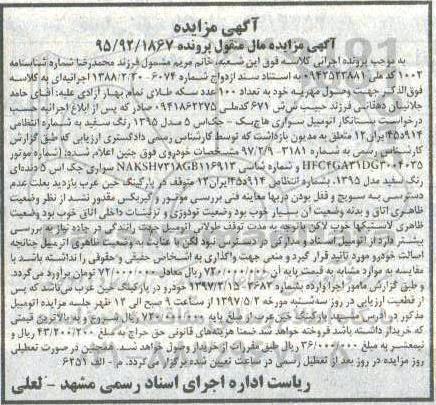 آگهی مزایده
آگهی مزایده مال منقول پرونده ۹۵/۹۲/۱۸۶۷
به موجب پرونده اجرایی کلاسه فوق این شعبه، خانم مریم مشمول فرزند محمدرضا شماره شناسنامه
۱۰۰۲ کد ملی ۰۹۴۲۵۲۳۸۸۱ به استناد سند ازدواج شماره ۶۰۷۴- ۱۳۸۸/۲/۲۰ اجرائیه‌ای به کلاسه
فوق‌الذکر جهت وصول مهریه خود به تعداد ۱۰۰ عدد سکه طلای تمام بهار آزادی علیه: آقای حامد
جانبیان دهقانی فرزند حبیب ش‌ش ۶۷۱ کدملی ۰۹۴۱۸۶۲۲۷۵ صادر که پس از ابلاغ اجرائیه حسب
درخواست بستانکار اتومبیل سواری هاچ‌بک - جک‌اس ۵ مدل ۱۳۹۵ رنگ سفید به شماره انتظامی
۹۱۴د۴۵ایران۱۲ متعلق به مدیون بازداشت که توسط کارشناس رسمی دادگستری ارزیابی که طبق گزارش
کارشناس رسمی به شماره ۳۱۸۱- ۹۷/۲/۹ مشخصات خودروی فوق چنین اعلام شده: (شماره موتور
HFC۴GA۳۱DG۳۰۰۴۰۳۵ و شماره شاسی NAKSH۷۳۱۸GB۱۱۶۹۱۳ سواری جک اس ۵ دنده‌ای
رنگ سفید مدل ۱۳۹۵، بشماره انتظامی ۹۱۴د۴۵ایران۱۲ متوقف در پارکینگ خین عرب بازدید بعلت عدم
دسترسی به سویچ و قفل بودن دربها معاینه فنی بررسی موتور و گیربکس مقدور نشد از نظر وضعیت
ظاهری اتاق و بدنه وضعیت آن بسیار خوب بود وضعیت تودوزی و تزئینات داخلی اتاق خوب بود وضعیت
ظاهری لاستیکها خوب لاکن باتوجه به مدت توقف طولانی اتومبیل جهت رانندگی در جاده نیاز به بررسی
بیشتر دارد از اتومبیل اسناد و مدارکی در دسترس نبود لکن با عنایت به وضعیت ظاهری اتومبیل چنانچه
اصالت خودرو مورد تائید قرار گیرد و منعی جهت واگذاری به اشخاص حقیقی و حقوقی را نداشته باشد با
مقایسه به موارد مشابه به قیمت پایه آن ۷۲۰/۰۰۰/۰۰۰ ریال معادل ۷۲/۰۰۰/۰۰۰ تومان برآورد می‌گردد.
و طبق گزارش مامور اجرا وارده بشماره ۳۶۸۲- ۱۳۹۷/۲/۱۵ خودرو در پارکینگ خین عرب می‌باشد که پس
از قطعیت ارزیابی در روز سه‌شنبه مورخه ۱۳۹۷/۵/۲ از ساعت ۹ صبح الی ۱۲ ظهر جلسه مزایده اتومبیل
مذکور در آدرس مشهد پارکینگ خین عرب از مبلغ پایه ۷۲۰/۰۰۰/۰۰۰ ریال شروع و به بالاترین قیمتی
که خریدار داشته باشد فروخته خواهد شد ضمنا هزینه‌های قانونی حق حراج به مبلغ ۴۳/۲۰۰/۰۰۰ ریال و
نیمعشر به مبلغ ۳۶/۰۰۰/۰۰۰ ریال طبق مقررات از خریدار وصول خواهد شد. همچنین در صورت تعطیلی
روز مزایده در روز بعد از تعطیل رسمی در ساعت تعیین شده برگزار می‌گردد. م- الف ۶۲۵۱
ریاست اداره اجرای اسناد رسمی مشهد - لعلی